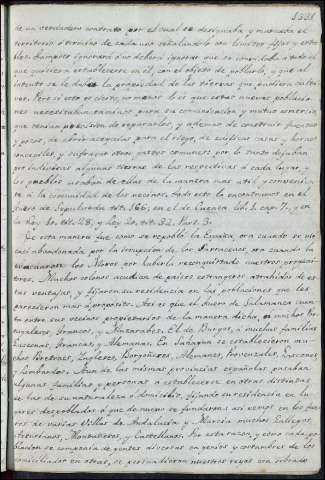 de un verdadero contrato, por el cual se designaba y marcaba el
territorio o termino de cada uno señalandole con limites fijos, y esta-
bles: tampoco ignorará ni deberá ignorar que se convidaba a todo el
que quisiera establecerse en él, con el objeto de poblarlo, y que al
intento se le daba la propiedad de las tierras que pudiera culti-
var. Pero si esto es cierto, no menos lo es que estas nuevas poblacio-
nes necesitaban caminos para su comunicacion y mutuo comercio
que tenian precision de repararlos, y ademas de construir fuentes
y pozos, de abrir acequias para el riego, de edificar casas y hornos
concejiles, y sufragar otros gastos comunes: por lo tanto dejaban
por individuas algunas tierras de las respectivas a cada lugar, y
los pueblos usaban de ellas de la manera mas util, y convenien-
te á la comunidad de los vecinos. Todo esto lo encontramos en el
fuero de Sepulveda tit. 166, en el de Cuenca lib. 1 cap. 7, y en
la ley 10. tit. 28, y ley 20. tit. 32. Part. 3.
De esta manera fue como se repobló la España, ora cuando se vio
casi abandonada por la irrupcion de los Sarracenos, ora cuando la
evacuaron los Moros por haberla reconquistado nuestros progeni-
tores. Muchos colonos acudian de paises extrangeros atrahidos de es-
tas ventajas, y fijaron su residencia en las poblaciones que les
parecieron mas a proposito. Asi es que el fuero de Salamanca cuen-
ta entre sus vecinos propietarios de la manera dicha, a muchos Por-
tugaleses, francos, y Mozarabes. El de Burgos, á muchas familias
Gasconas, francas, y Alemanas. En Sahagun se establecieron mu-
chos Bretones, Ingleses, Borgoñeses, Alemanes, Provenzales, Gascones
y Lombardos. Aun de las mismas provincias españolas pasaban
algunas familias y personas a establecerse en otras distintas
de las de su naturaleza o domicilio, fijando su residencia en lu-
gares despoblados o que de nuevo se fundaron: asi vemos en los fue-
ros de varias Villas de Andalucia y Murcia muchos Gallegos
Asturianos, Montañeses, y Castellanos. Por esta razon, y como cada po-
blacion se componia de gentes diversas en genios y costumbres de los
domiciliados en otras, se persuadieron nuestros reyes con sobrado